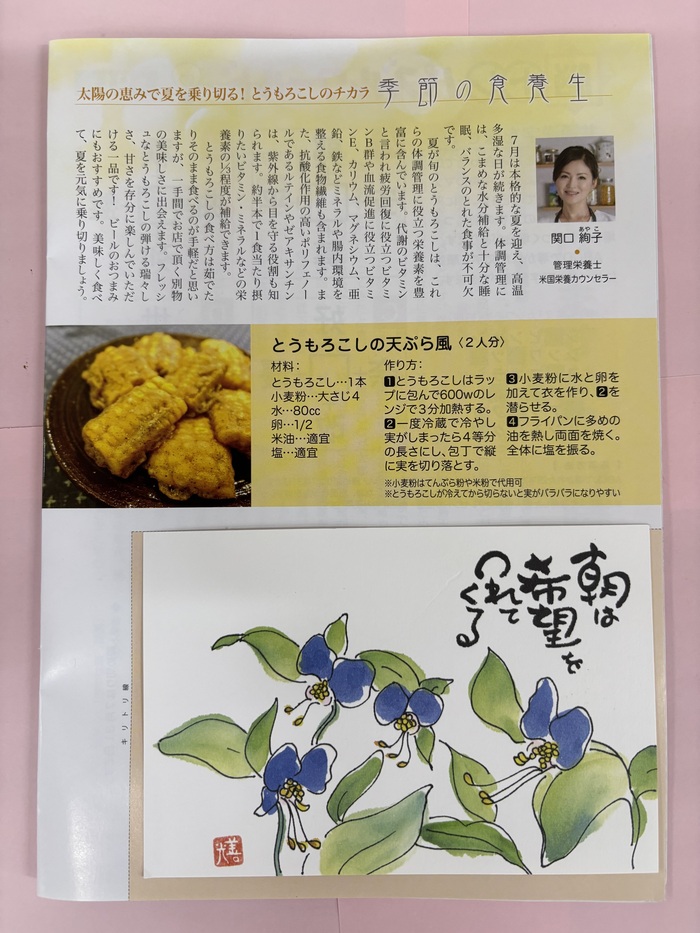 太陽の恵みで夏を乗り切る！とうもろこしのチカラ
季節の食養生
7月は本格的な夏を迎え、高温
多湿な日が続きます。体調管理に
は、こまめな水分補給と十分な睡
眠、バランスのとれた食事が不可欠
です。
夏が旬のとうもろこしは、これ
らの体調管理に役立つ栄養素を豊
富に含んでいます。代謝のビタミン
と言われ疲労回復に役立つビタミ
ンB群や血流促進に役立つビタミ
ンE、カリウム、マグネシウム、亜
鉛、鉄などミネラルや腸内環境を
整える食物繊維も含まれます。ま
た、抗酸化作用の高いポリフェノー
ルであるルテインやゼアキサンチン
は、紫外線から目を守る役割も知
られます。約半本で1食当たり摂
りたいビタミン・ミネラルなどの栄
養素の⅓程度が補給できます。
とうもろこしの食べ方は茹でた
りそのまま食べるのが手軽だと思い
ますが、一手間でお店で頂く別物
の美味しさに出会えます。フレッシ
ュなとうもろこしの弾ける瑞々し
さ、甘さを存分に楽しんでいただ
ける一品です！ビールのおつまみ
にもおすすめです。美味しく食べ
て、夏を元気に乗り切りましょう。
あやこ
関口 絢子
管理栄養士
米国栄養カウンセラー
とうもろこしの天ぷら風〈２人分〉
材料：
とうもろこし…1本
小麦粉…大さじ４
水…80cc
卵…1/2
米油…適宜
塩…適宜
作り方：
1とうもろこしはラッ
プに包んで600wのレ
ンジで３分加熱する。
2一度冷蔵で冷やし
実がしまったら４等分
の長さにし、包丁で縦
に実を切り落とす。
3小麦粉に水と卵を
加えて衣を作り、2を
潜らせる。
4フライパンに多めの
油を熱し両面を焼く。
全体に塩を振る。
※小麦粉はてんぷら粉や米粉で代用可
※とうもろこしが冷えてから切らないと実がバラバラになりやすい
朝は
希望を
つれて
くる
キリトリ線